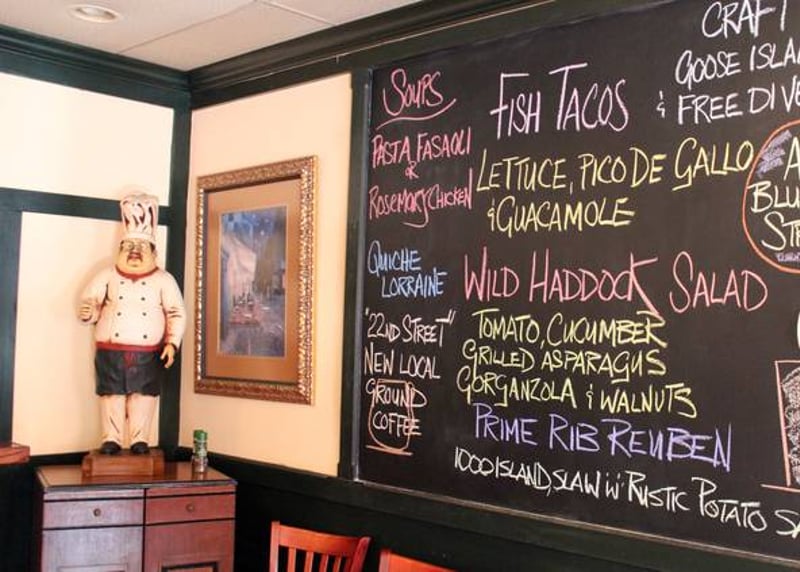 SOUPS
PASTA FASAOLI
OR
ROSEMARY CHICKEN
QUICHE
LORRAINE
"22ND STREET"
NEW LOCAL
GROUND
COFFEE
FISH TACOS
LETTUCE, PICO DE GALLO
& GUACAMOLE
WILD HADDOCK SALAD
TOMATO, CUCUMBER
GRILLED ASPARAGUS
GORGANZOLA & WALNUTS
PRIME RIB REUBEN
1000 ISLAND, SLAW W/ RUSTIC POTATO
CRAFT
GOOSE ISLA
& FREE DIVE
A
BLU
STR